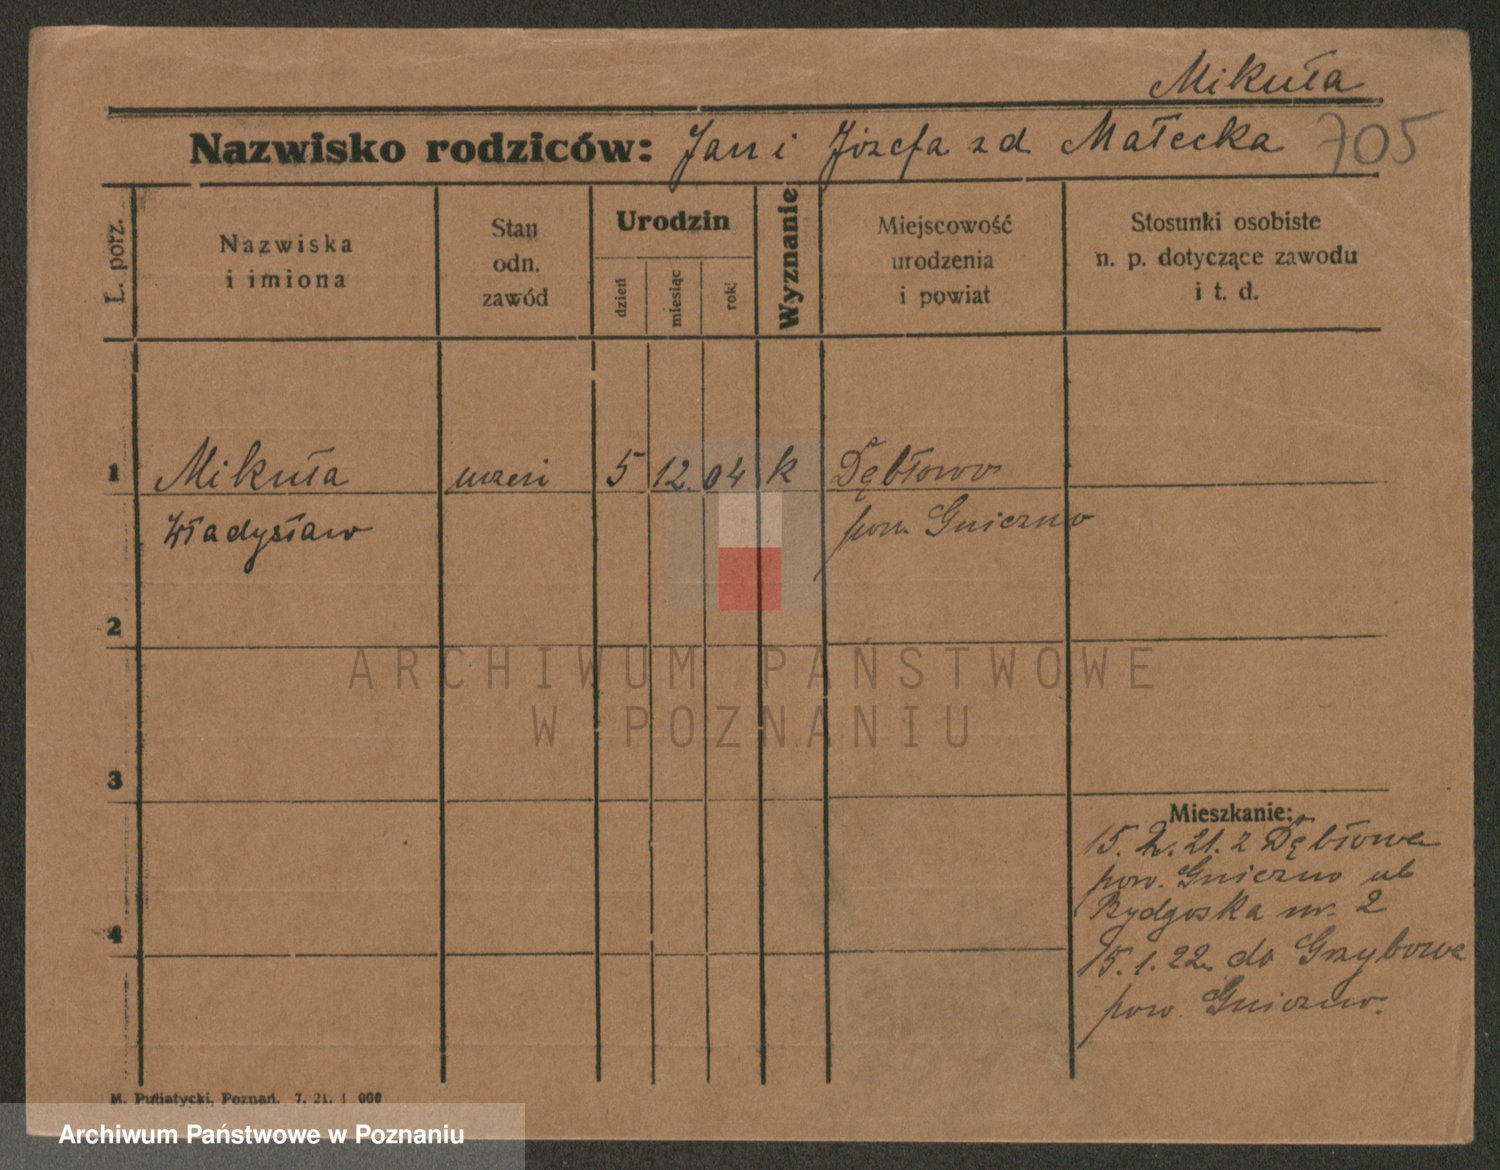 Mikuła
Nazwisko rodziców: Jan i Józefa z d Małecka 705
L. porz.
Nazwiska
i imiona
Stan
odn.
zawód
Urodzin
dzień
miesiąc
rok
Wyznanie
Miejscowość
urodzenia
i powiat
Stosunki osobiste
n. p. dotyczące zawodu
i t. d.
1 Mikuła uczeń 5 12. 04 k Dębłowo
Władysław pow. Gniezno
2
3
4
Mieszkanie:
15. 21. z Dębłowa
pow. Gniezno ul
Bydgoska nr. 2
15. 1. 22. do Grzybowa
pow. Gniezno.
M. Putiatycki, Poznań. 7. 21. 1 000
ARCHIWUM PAŃSTWOWE
W POZNANIU
Archiwum Państwowe w Poznaniu